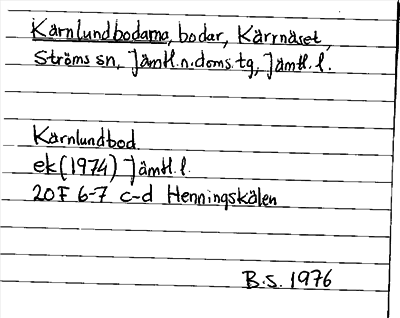 Kärnlundbodarna, bodar, Kärrnäset,
Ströms sn, Jämtl.n.doms.tg, Jämtl.l.
Kärnlundbod
ek (1974) Jämtl.l.
20F 6-7 c-d Henningskälen
B.S. 1976